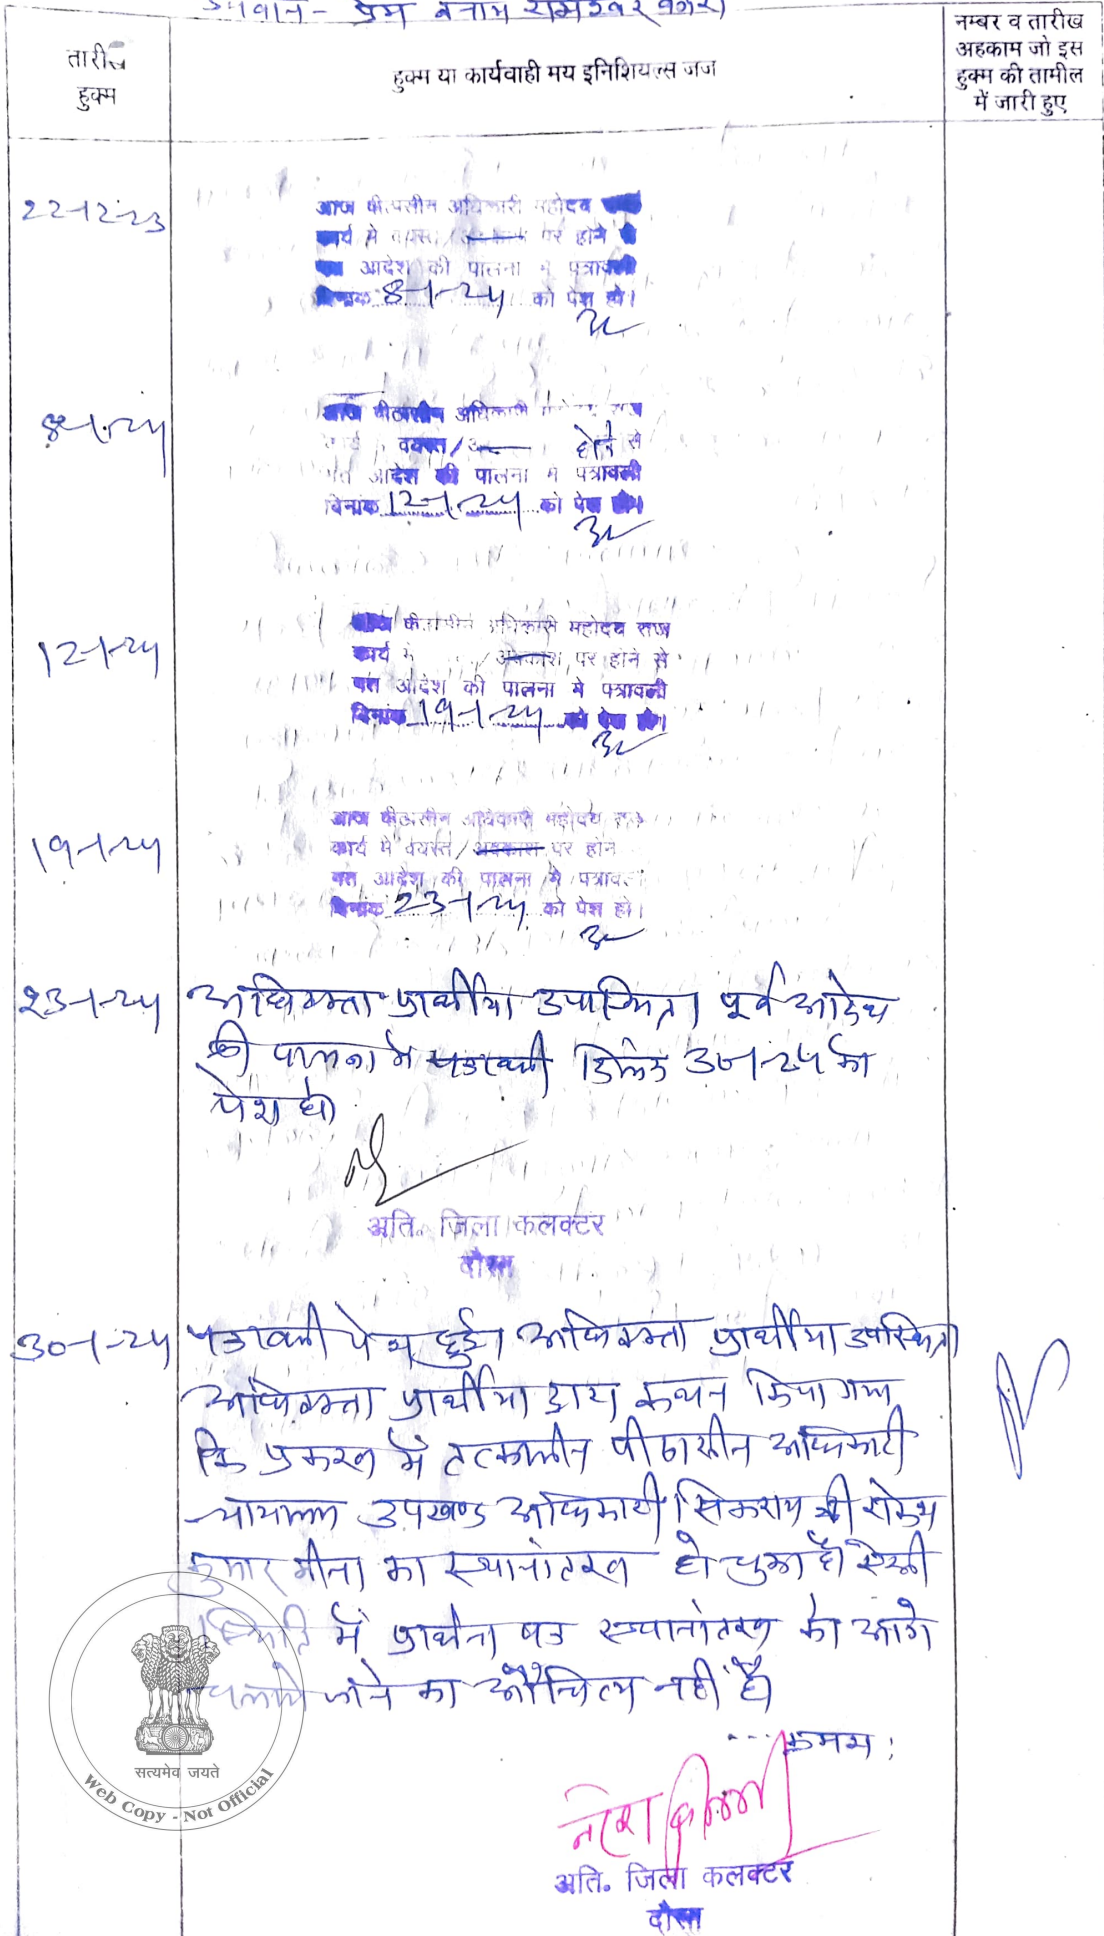 प्रेम बनाम रामेश्वर वगैरा
तारीख हुक्म
हुक्म या कार्यवाही मय इनिशियल्स जज
नम्बर व तारीख
अहकाम जो इस
हुक्म की तामील
में जारी हुए
22-12-23
आज पीठासीन अधिकारी महोदय
कार्य मे व्यस्त / पर होने से
आदेश की पालना मे पत्रावली
दिनांक 8-1-24 को पेश हो।
8-1-24
आज पीठासीन अधिकारी राज
वयस्त / होने से
गत आदेश की पालना मे पत्रावली
दिनांक 12-1-24 को पेश हो।
12-1-24
आज पीठासीन अधिकारी महोदय राज
कार्य मे / अवकाश पर होने से
गत आदेश की पालना मे पत्रावली
दिनांक 19-1-24 को पेश हो।
19-1-24
आज पीठासीन अधिकारी महोदय राज
कार्य मे वयस्त / अवकाश पर होने
गत आदेश की पालना मे पत्रावली
दिनांक 23-1-24 को पेश हो।
23-1-24 अधिवक्ता प्रार्थीया उपस्थित। पूर्व आदेश
की पालना मे पत्रावली दिनांक 30-1-24 को
पेश हो
अति. जिला कलक्टर
दौसा
30-1-24 पत्रावली पेश हुई। अधिवक्ता प्रार्थीया उपस्थित।
अधिवक्ता प्रार्थीया द्वारा कथन किया गया
कि प्रकरण में तत्कालीन पीठासीन अधिकारी
न्यायालय उपखण्ड अधिकारी सिकराय श्री राकेश
कुमार मीना का स्थानांतरण हो चुका है। ऐसी
स्थिति में प्रार्थना पत्र स्थानांतरण को आगे
चलाये जाने का औचित्य नहीं है।
---क्रमश:
अति. जिला कलक्टर
दौसा
सत्यमेव जयते
Web Copy - Not Official